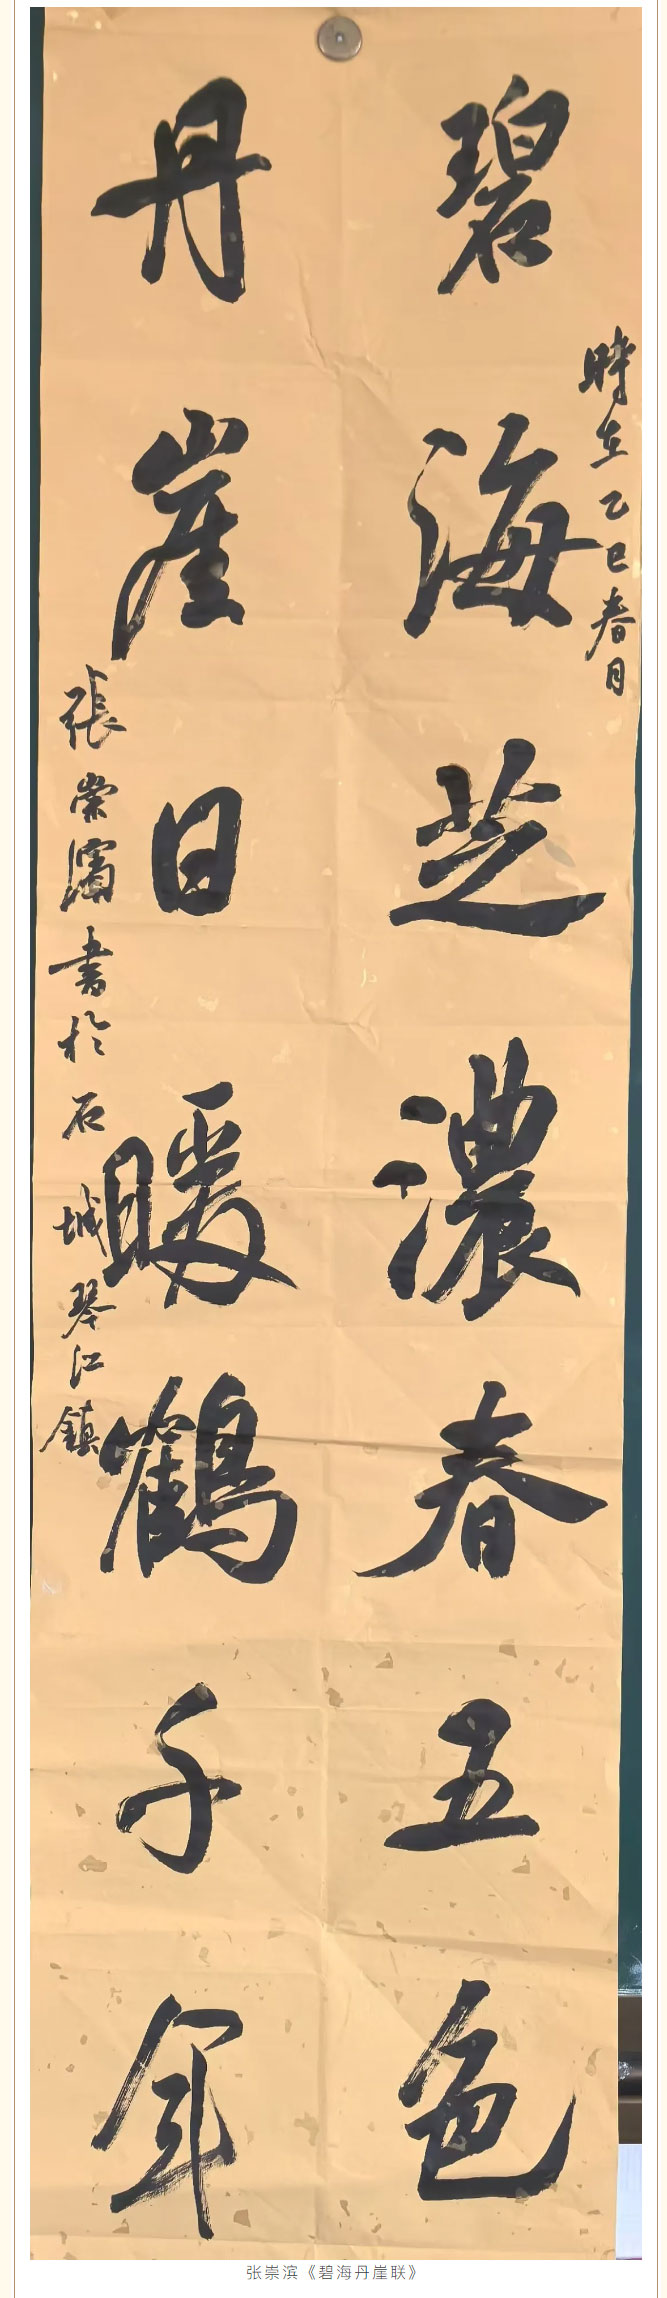 碧海芝濃春五色
時在乙巳春月
丹崖日暖鶴千年
張崇濱書於石城琴江鎮
张崇滨《碧海丹崖联》